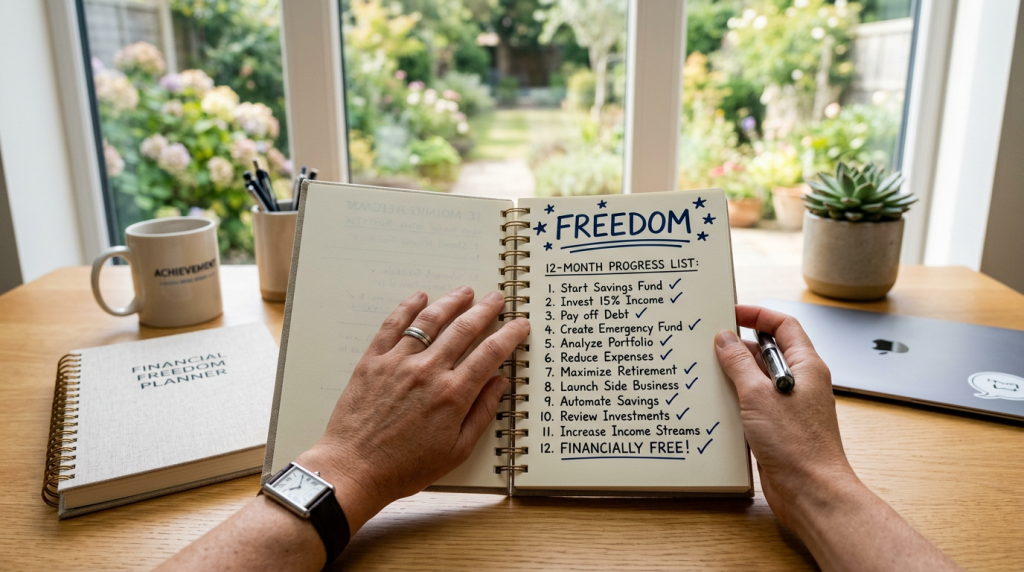 FREEDOM
12-MONTH PROGRESS LIST:
1. Start Savings Fund ✓
2. Invest 15% Income ✓
3. Pay off Debt ✓
4. Create Emergency Fund ✓
5. Analyze Portfolio ✓
6. Reduce Expenses ✓
7. Maximize Retirement ✓
8. Launch Side Business ✓
9. Automate Savings ✓
10. Review Investments ✓
11. Increase Income Streams ✓
12. FINANCIALLY FREE! ✓
ACHIEVEMENT
FINANCIAL
FREEDOM
PLANNER